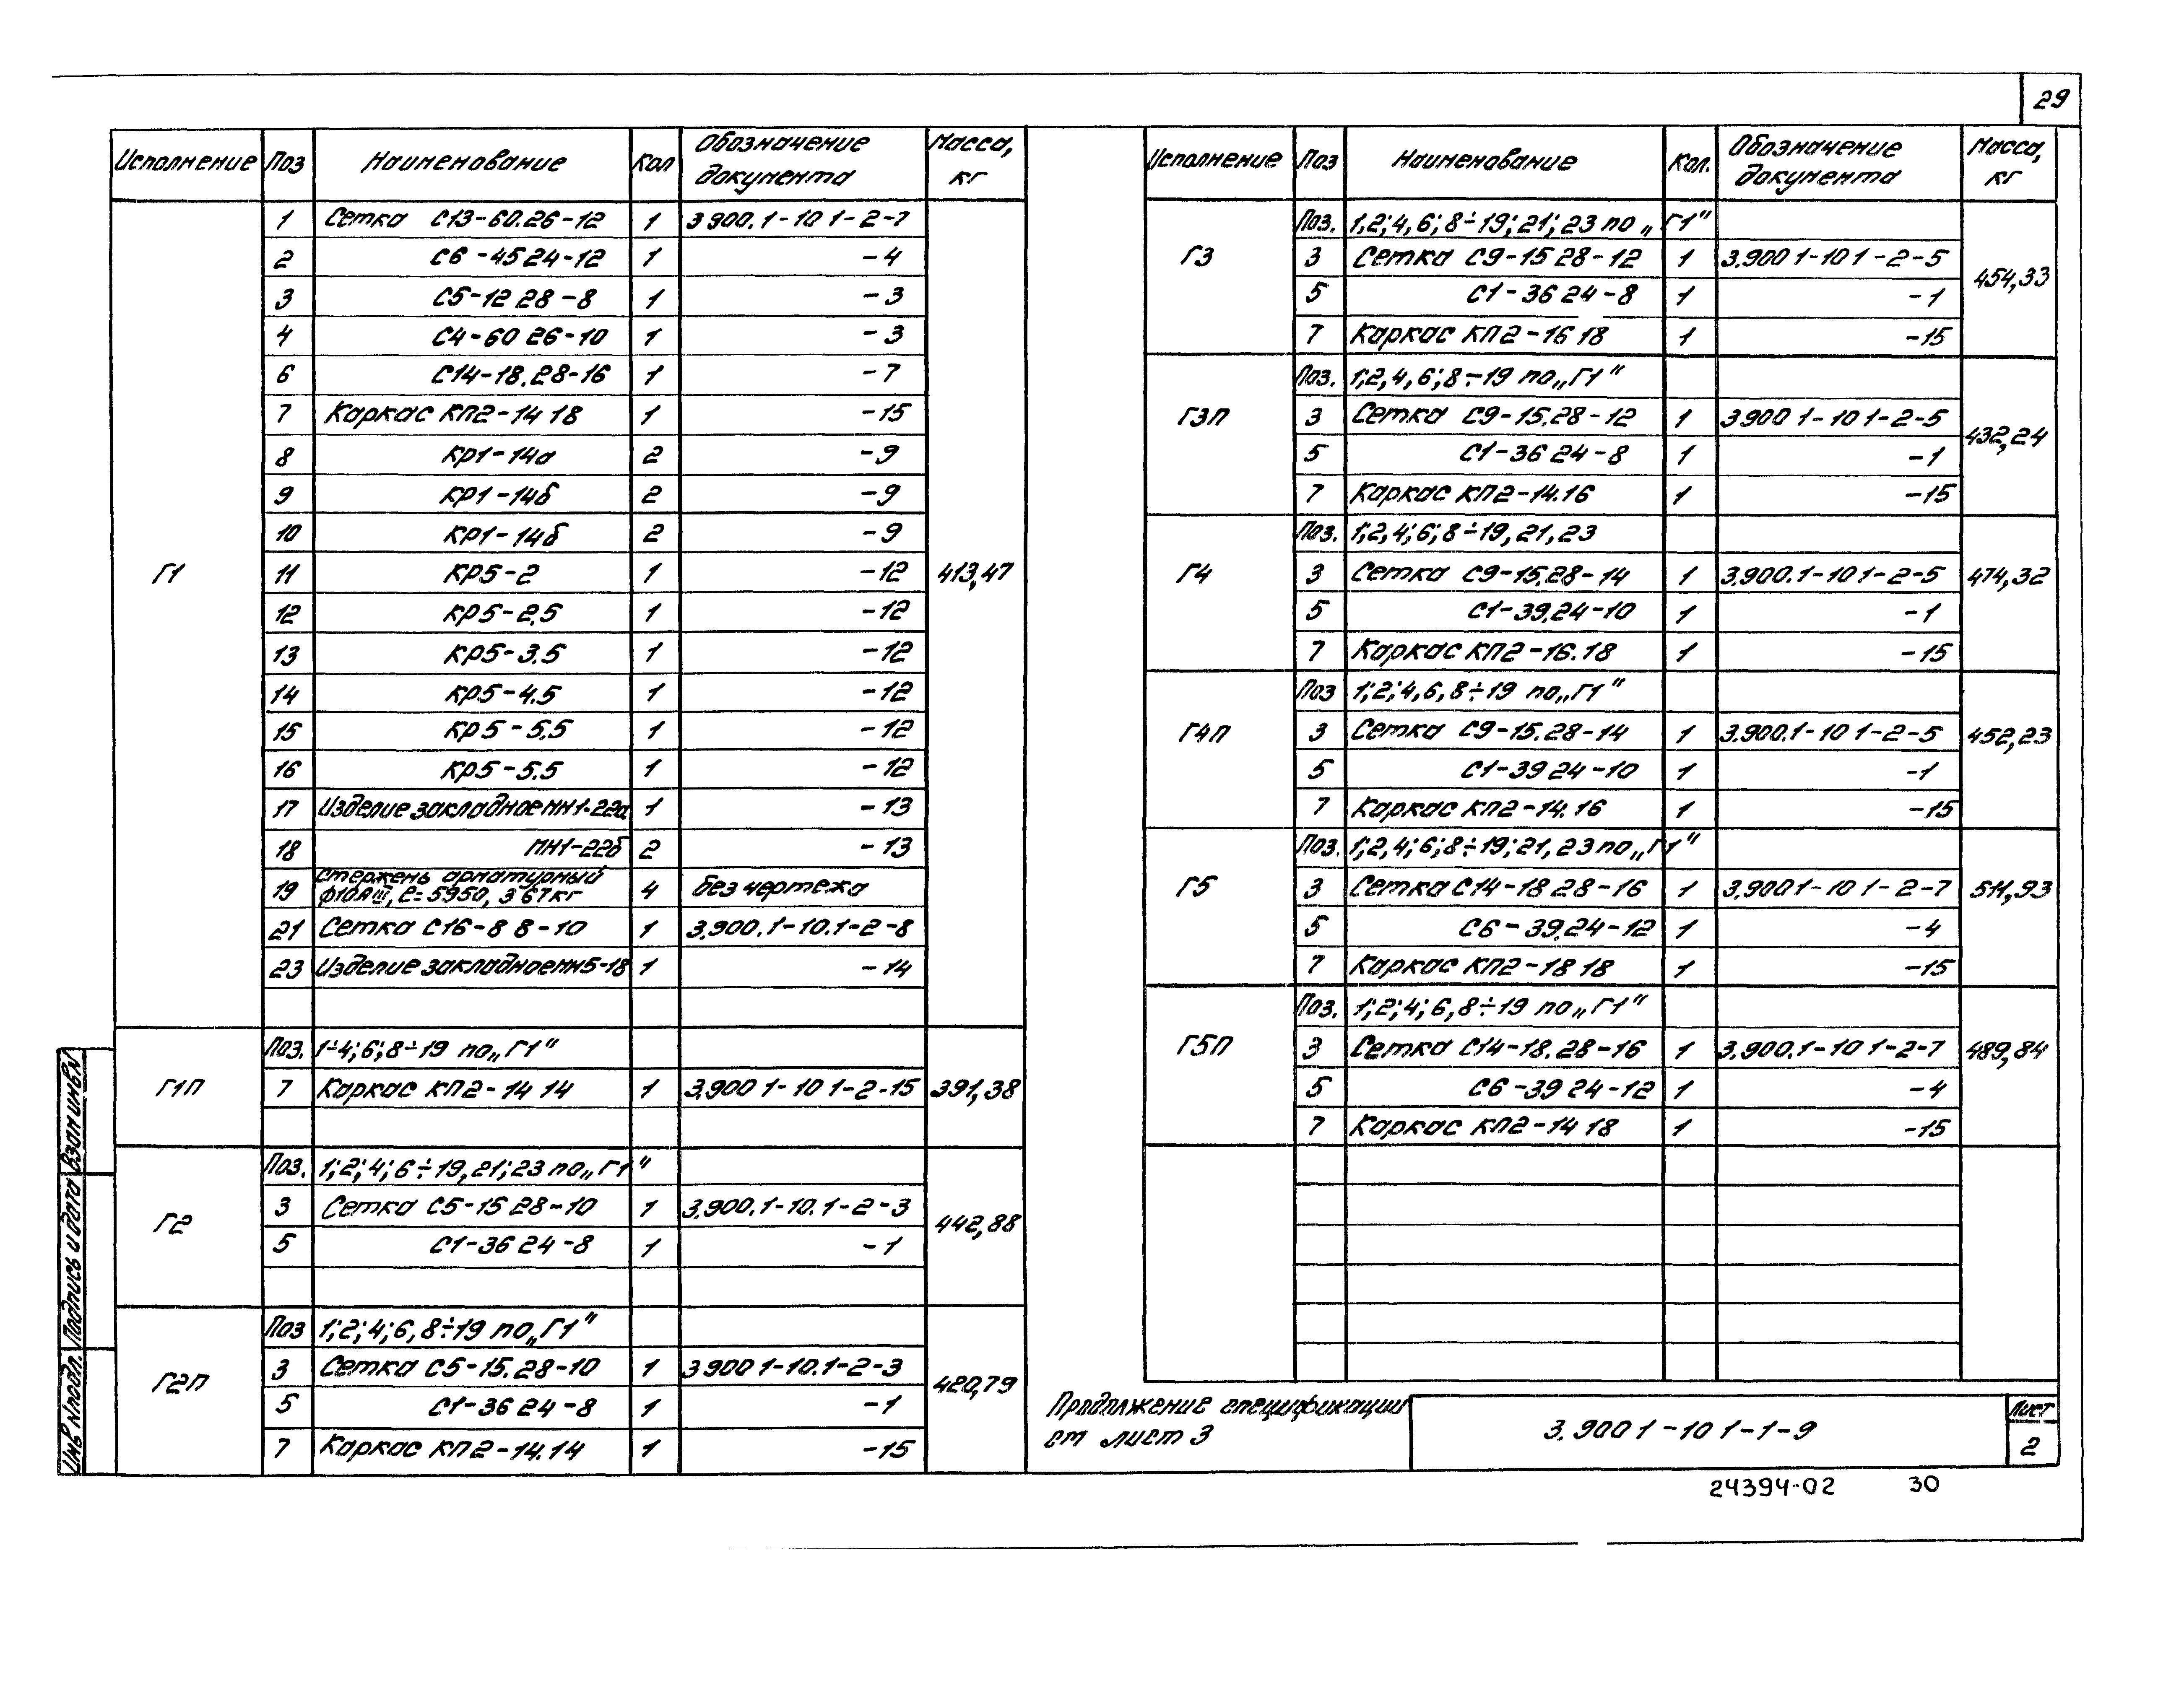 29
Исполнение Поз Наименование Кол Обозначение документа Масса, кг
Г1 413,47
1 Сетка С13-60.26-12 1 3 900.1-10 1-2-7
2 С6-45 24-12 1 -4
3 С5-12 28-8 1 -3
4 С4-60 26-10 1 -3
6 С14-18.28-16 1 -7
7 Каркас КП2-14 18 1 -15
8 КР1-14а 2 -9
9 КР1-14б 2 -9
10 КР1-14б 2 -9
11 КР5-2 1 -12
12 КР5-2,5 1 -12
13 КР5-3.5 1 -12
14 КР5-4.5 1 -12
15 КР5-5.5 1 -12
16 КР5-5.5 1 -12
17 Изделие закладное МН1-22а 1 -13
18 МН1-22б 2 -13
19 Стержень арматурный
ф10АIII, ℓ=5950, 3 67кг 4 без чертежа
21 Сетка С16-8 8-10 1 3.900.1-10.1-2-8
23 Изделие закладное МН5-18 1 -14
Г1П 391,38
Поз. 1÷4; 6; 8÷19 по „Г1"
7 Каркас КП2-14 14 1 3.900 1-10 1-2-15
Г2 442,88
Поз. 1; 2; 4; 6÷19, 21; 23 по „Г1"
3 Сетка С5-15 28-10 1 3.900.1-10.1-2-3
5 С1-36 24-8 1 -1
Г2П 420,79
Поз 1; 2; 4; 6, 8÷19 по „Г1"
3 Сетка С5-15.28-10 1 3 900 1-10.1-2-3
5 С1-36 24-8 1 -1
7 Каркас КП2-14.14 1 -15
Исполнение Поз Наименование Кол. Обозначение документа Масса, кг
Г3 454,33
Поз. 1,2; 4, 6; 8÷19; 21; 23 по „Г1"
3 Сетка С9-15 28-12 1 3.900 1-10 1-2-5
5 С1-36 24-8 1 -1
7 Каркас КП2-16 18 1 -15
Г3П 432,24
Поз. 1; 2, 4, 6; 8÷19 по „Г1"
3 Сетка С9-15.28-12 1 3 900 1-10 1-2-5
5 С1-36 24-8 1 -1
7 Каркас КП2-14.16 1 -15
Г4 474,32
Поз. 1; 2, 4; 6; 8÷19, 21, 23
3 Сетка С9-15.28-14 1 3.900.1-10 1-2-5
5 С1-39.24-10 1 -1
7 Каркас КП2-16.18 1 -15
Г4П 452,23
Поз 1; 2; 4, 6, 8÷19 по „Г1"
3 Сетка С9-15.28-14 1 3.900.1-10 1-2-5
5 С1-39 24-10 1 -1
7 Каркас КП2-14.16 1 -15
Г5 511,93
Поз. 1; 2, 4; 6; 8÷19; 21, 23 по „Г1"
3 Сетка С14-18 28-16 1 3.900 1-10 1-2-7
5 С6-39.24-12 1 -4
7 Каркас КП2-18 18 1 -15
Г5П 489,84
Поз. 1; 2; 4; 6, 8÷19 по „Г1"
3 Сетка С14-18.28-16 1 3.900.1-10 1-2-7
5 С6-39 24-12 1 -4
7 Каркас КП2-14 18 1 -15
Продолжение спецификации
см лист 3
3.900 1-10 1-1-9
Лист
2
24394-02 30
Инв N подл. Подпись и дата Взам инв N